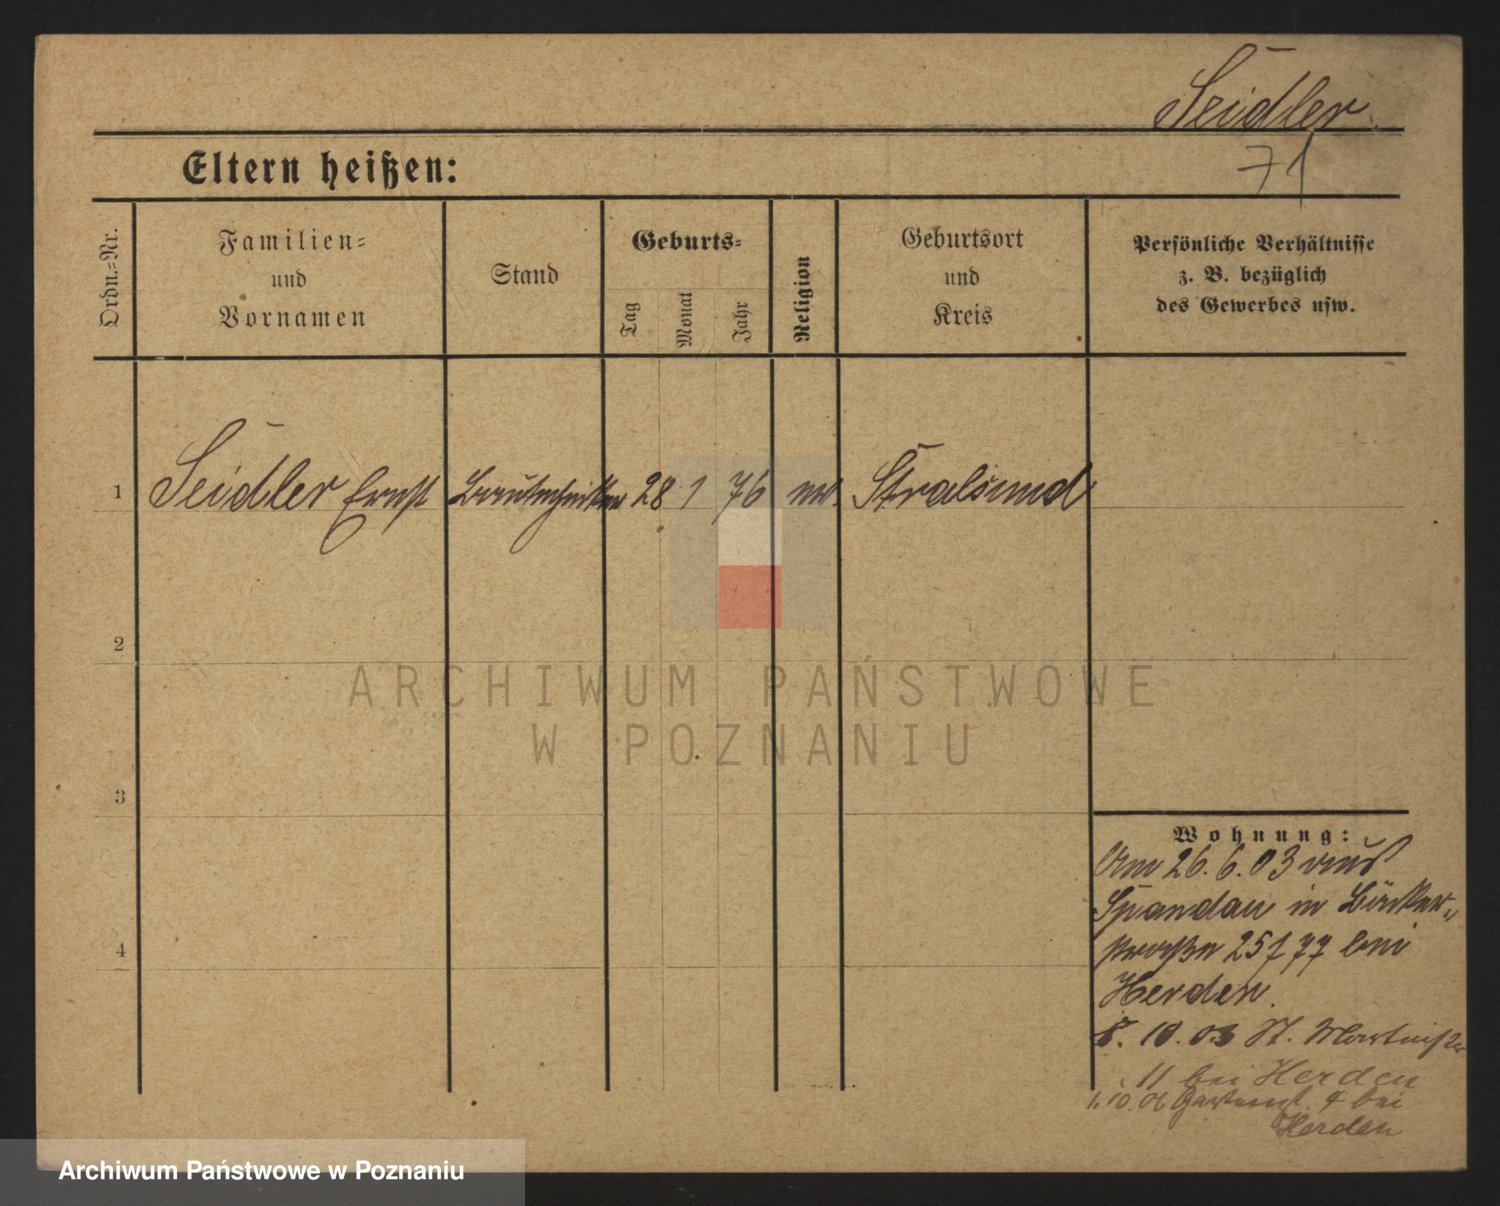 Seidler.
Eltern heißen:
71
Ordn.=Nr.
Familien=
und
Vornamen
Stand
Geburts=
Tag
Monat
Jahr
Religion
Geburtsort
und
Kreis
Persönliche Verhältnisse
z. B. bezüglich
des Gewerbes usw.
1 Seidler Ernst Bautechniker 28 1 76 ev. Stralsund
2
3
4
Wohnung:
Am 26.6.03 aus
Spandau in Bäcker„
straße bei
Herden.
10.03 St. Martinstr
11 bei Herden
1.10.06 Gartenst. 4 bei
Herden
ARCHIWUM PAŃSTWOWE
W POZNANIU
Archiwum Państwowe w Poznaniu